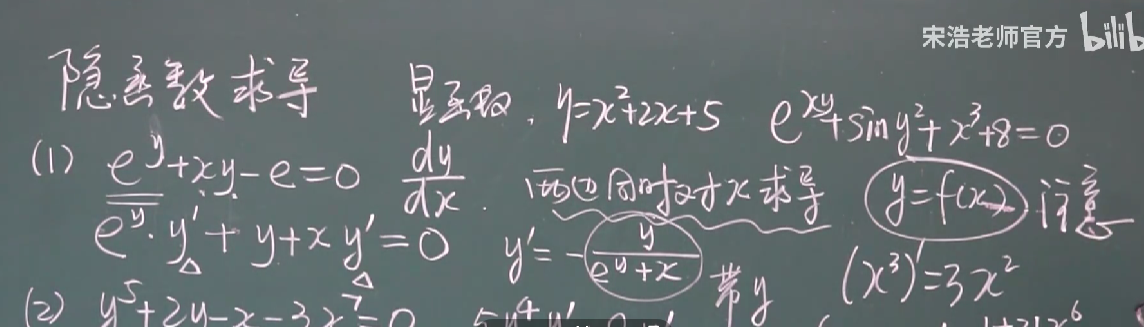 宋浩老师官方 bilib
隐函数求导 显函数, y=x²+2x+5 e^{xy}+siny²+x³+8=0
(1) e^y+xy-e=0 dy/dx. 两边同时对x求导 y=f(x) 注意
e^y·y'+y+xy'=0 y'=-y/(e^y+x) 带y (x³)'=3x²
(2) y⁵+2y-x-3x⁷=0 5y⁴y'